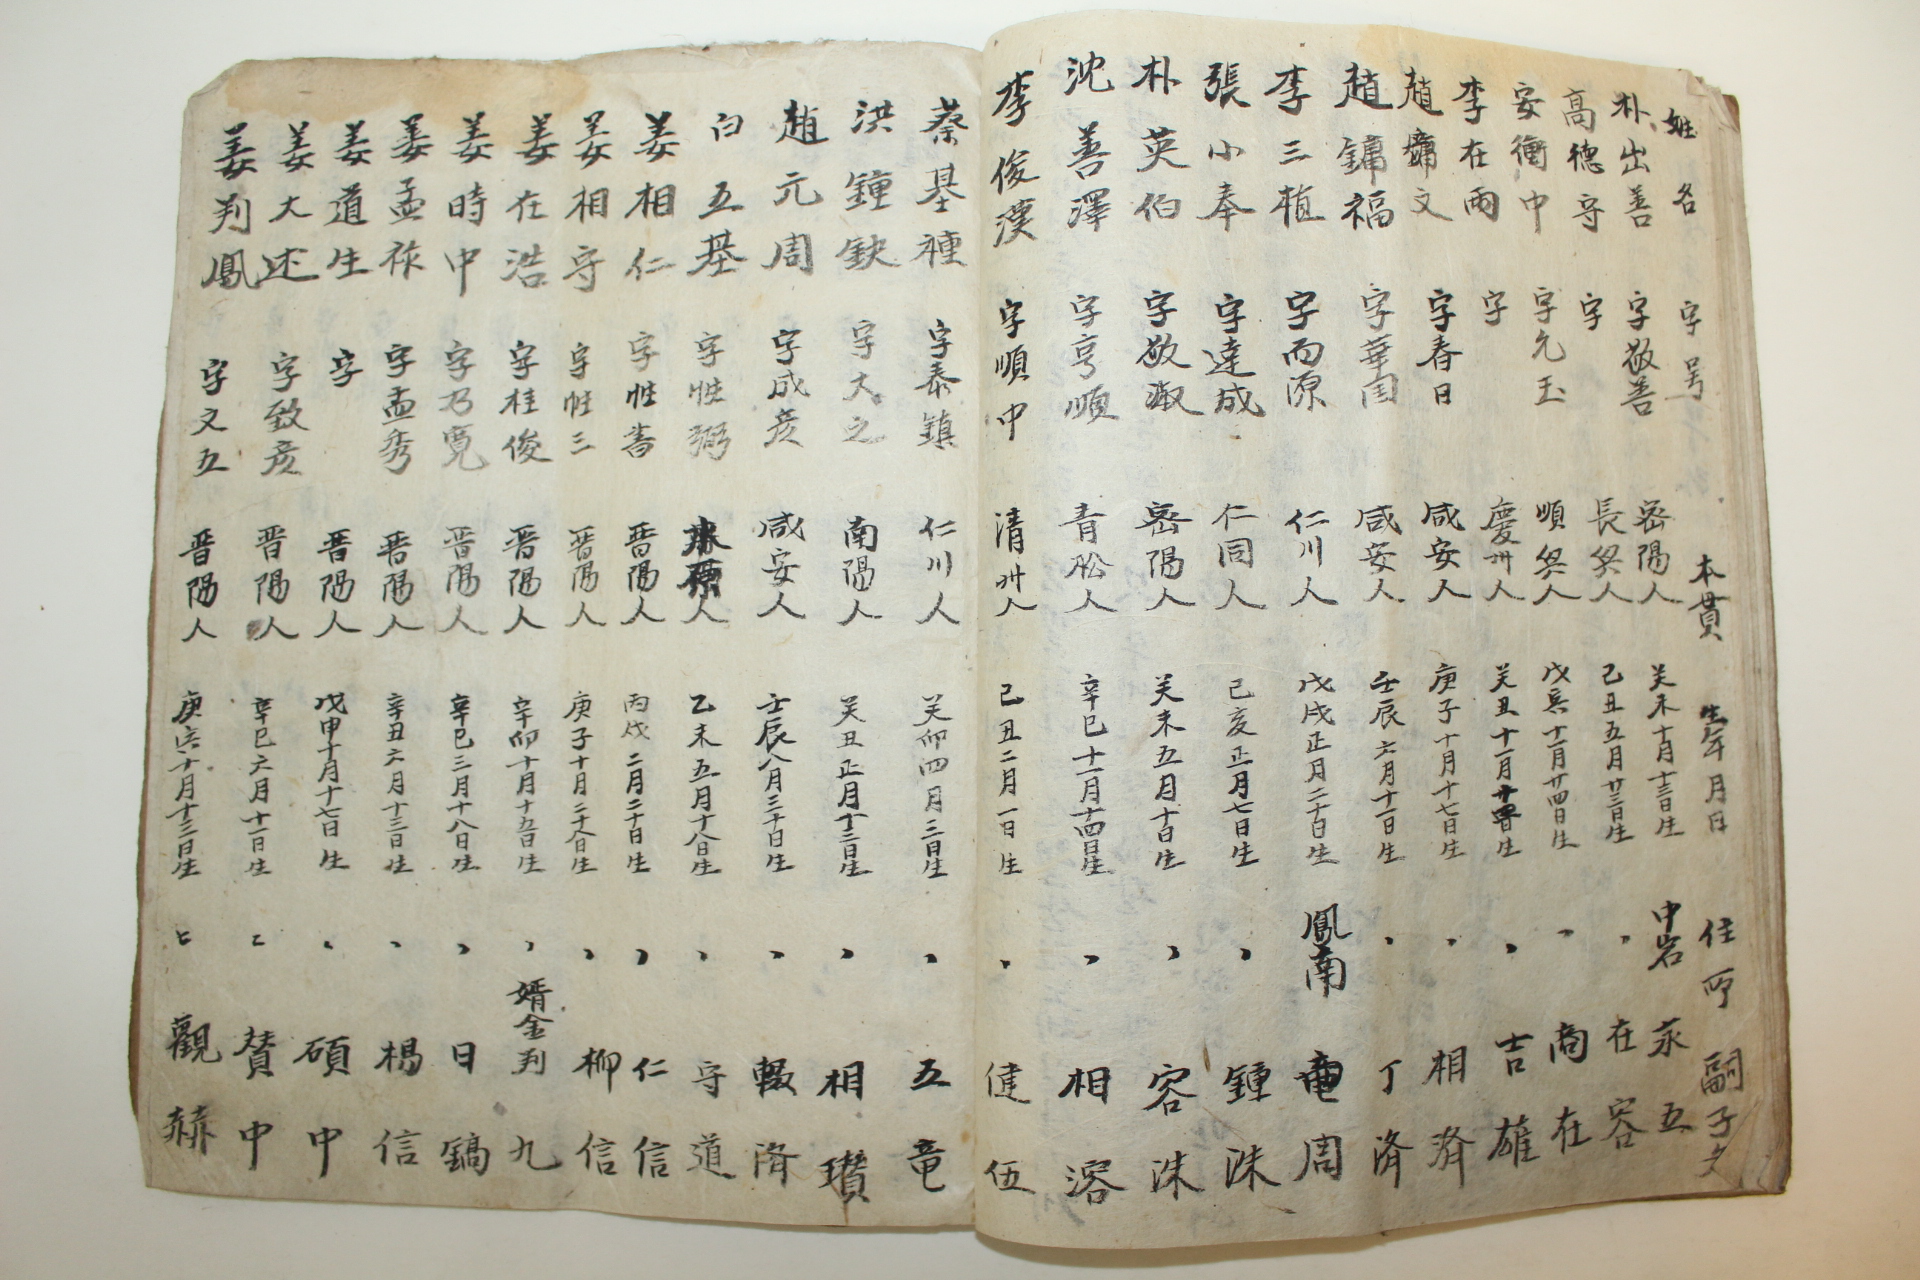 姓名 字号 本貫 生年月日 住所 嗣子名
朴出善 字敬善 密陽人 癸未十月十三日生 中岩 永五
高德守 字 長興人 己丑五月廿三日生 、 在容
安衡中 字允玉 順興人 戊寅十一月廿四日生 、 商在
李在雨 字 慶州人 癸丑十一月 日生 、 吉雄
趙鏞文 字春日 咸安人 庚子十月十七日生 、 相濟
趙鏞福 字華国 咸安人 壬辰六月十一日生 、 丁濟
李三植 字而源 仁川人 戊戌正月二十日生 鳳南 周
張小奉 字達成 仁同人 己亥正月七日生 、 鍾洙
朴英伯 字敬淑 密陽人 癸未五月十日生 、 容洙
沈善澤 字亨順 青松人 辛巳十一月十四日生 、 相溶
李俊漢 字順中 清州人 己丑二月一日生 、 健伍
蔡基種 字泰鎮 仁川人 癸卯四月三日生 、 五竜
洪鍾欽 字大之 南陽人 癸丑正月十三日生 、 相瓚
趙元周 字成彦 咸安人 壬辰八月三十日生 、 濟
白五基 字性弼 人 乙未五月十八日生 、 守道
姜相仁 字性書 晋陽人 丙戌二月二十日生 、 仁信
姜相守 字性三 晋陽人 庚子十月二十八日生 、 柳信
姜在浩 字桂俊 晋陽人 辛卯十月十五日生 、 婿金判九
姜時中 字乃寛 晋陽人 辛巳三月十八日生 、 日鎬
姜孟祚 字孟秀 晋陽人 辛丑六月十三日生 、 楊信
姜道生 字 晋陽人 戊申十月十七日生 、 碩中
姜大述 字致彦 晋陽人 辛巳六月十一日生 〻 賛中
姜判鳳 字文五 晋陽人 庚寅十月十三日生 〻 觀赫